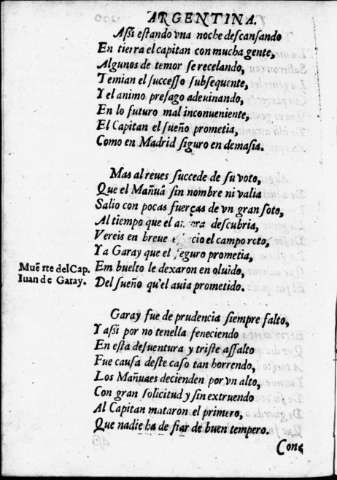 ARGENTINA.
Aſsi eſtando vna noche deſcanſando
En tierra el capitan con mucha gente,
Algunos de temor ſe recelando,
Temian el ſucceſſo ſubſequente,
Y el animo preſago adeuinando,
En lo futuro mal inconueniente,
El Capitan el ſueño prometia,
Como en Madrid ſiguro en demaſia.
Mas al reues ſuccede de ſu voto,
Que el Mañuà ſin nombre ni valia
Salio con pocas fuerças de vn gran ſoto,
Al tiempo que el deſcubria,
Vereis en breue el campo roto,
Y a Garay que el ſeguro prometia,
Em buelto le dexaron en oluido,
Del ſueño qu'el auia prometido.
Muerte del Cap.
Iuan de Garay.
Garay fue de prudencia ſiempre falto,
Y aſsi por no tenella feneciendo
En eſta deſuentura y triſte aſſalto
Fue cauſa deſte caſo tan horrendo,
Los Mañuaes decienden por vn alto,
Con gran ſolicitud y ſin extruendo
Al Capitan mataron el primero,
Que nadie ha de fiar de buen tempero.
Con